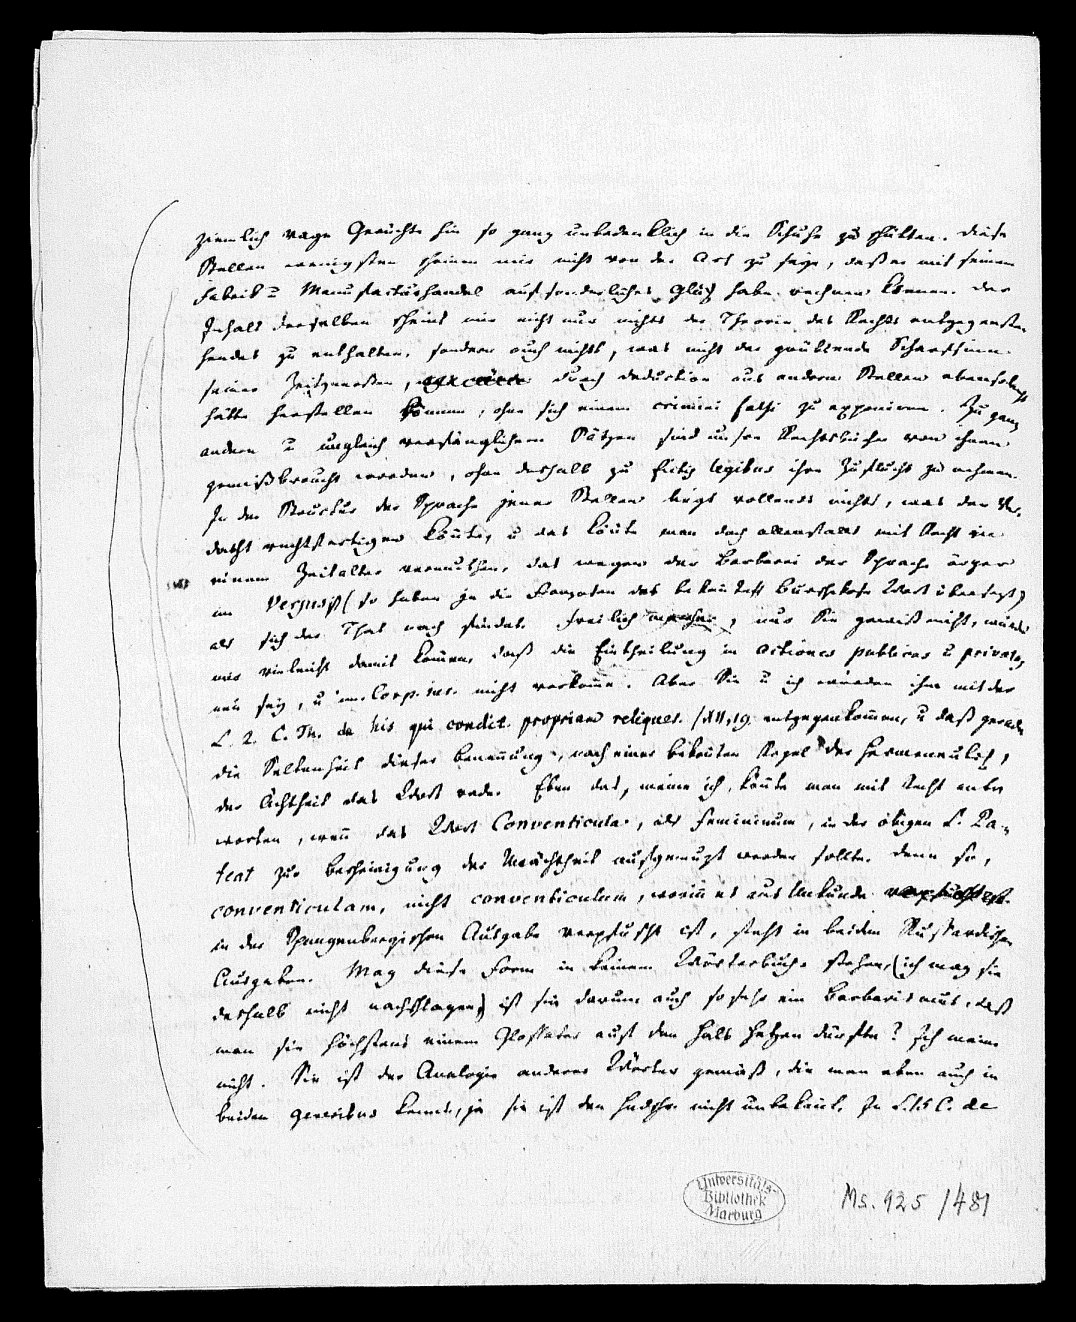 ziemlich vage Gerüchte hin so ganz unbedenklich in die Schuhe zu schütten. Diese
Stellen wenigsten scheinen mir nicht von der Art zu seyn, daß er mit seinem
Fabrik- u Manufacturhandel auf sonderliches Glück habe rechnen können. Der
Inhalt derselben scheint mir nicht nur nichts der Theorie des Rechts entgegenste-
hendes zu enthalten, sondern auch nichts, was nicht der grübelnde Scharfsinn
seiner Zeitgenossen, durch Deduction aus andern Stellen ebensoleicht
hätte herstellen können, ohne sich einem crimini falsi zu exponiren. Zu ganz
andern u ungleich verfänglichern Sätzen sind unsre Rechtsbücher von ihnen
gemißbraucht worden, ohne deshalb zu fictis legibus ihre Zuflucht zu nehmen.
In der Structur der Sprache jener Stellen liegt vollends nichts, was den Ver-
dacht rechtfertigen könnte, u das könnte man doch allenfalls mit Recht in
einem Zeitalter vermuthen, das wegen der Barberei der Sprache ärger
im Verruf (so haben ja die die das bekannte Wort übersetzt)
als sich der That nach findet. Freilich, nur Sie gewiß nicht, würde
mir vielleicht damit kommen, daß die Eintheilung in actiones publicas u privatas
neu sey, u im Corp. iur. nicht vorkomme. Aber Sie u ich würden ihm mit der
L. 2. C. Th. de his qui condit. propriam reliquer. (XII,19) entgegenkommen, u daß gerade
die Seltenheit dieser Benennung, nach einer bekannten Regel der Hermeneutick,
der Achtheit das Wort rede. Eben das, meine ich, könnte man mit Recht antw
worten, wenn das Wort Conventicula, als Femininum, in der obigen L. Pa-
teat zur Bescheinigung der Unächtheit aufgemuzt werden sollte. Denn so,
conventiculam, nicht conventiculum, worinn es aus Unkunde
in der Spangenbergischen Ausgabe verpfuscht ist, steht in beiden Russardischen
Ausgaben. Mag diese Form in keinem Wörterbuche stehen, (ich mag sie
deshalb nicht nachschlagen) ist sie darum auch so sehr ein Barbarismus, daß
man sie höchstens einem Glossator auf den Hals hetzen dürfte? Ich meine
nicht. Sie ist der Analogie anderer Wörter gemäß, die man eben auch in
beiden generibus kennt, ja sie ist den Hndschr. nicht unbekant. In L. 15 C. de
Universitäts-
Bibliothek
Marburg
Ms. 925/481